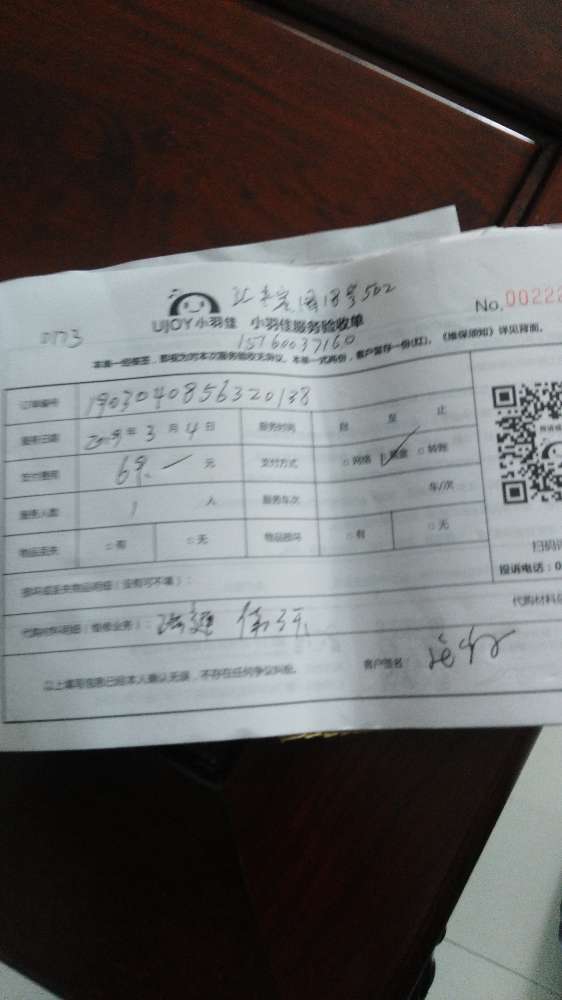 18号502
No. 00222
UJOY小羽佳 小羽佳服务验收单
0173
15760037160
本单一经签签，即视为对本次服务验收无异议。本单一式两份，客户暂存一份(红)。《维保须知》详见背面。
订单编号 1903040856320138
服务日期 2019年3月4日 服务时间 自 至 止
支付费用 69 元 支付方式 网络 现金 转账
服务人数 1 人 服务车次 车/次
物品丢失 有 无 物品损坏 有 无
扫码
投诉电话：0
损坏或丢失物品明细（没有可不填）：
代购材料明细（维修业务）： 疏通
代购材料总
以上填写信息已经本人确认无误，不存在任何争议纠纷。 客户签名：